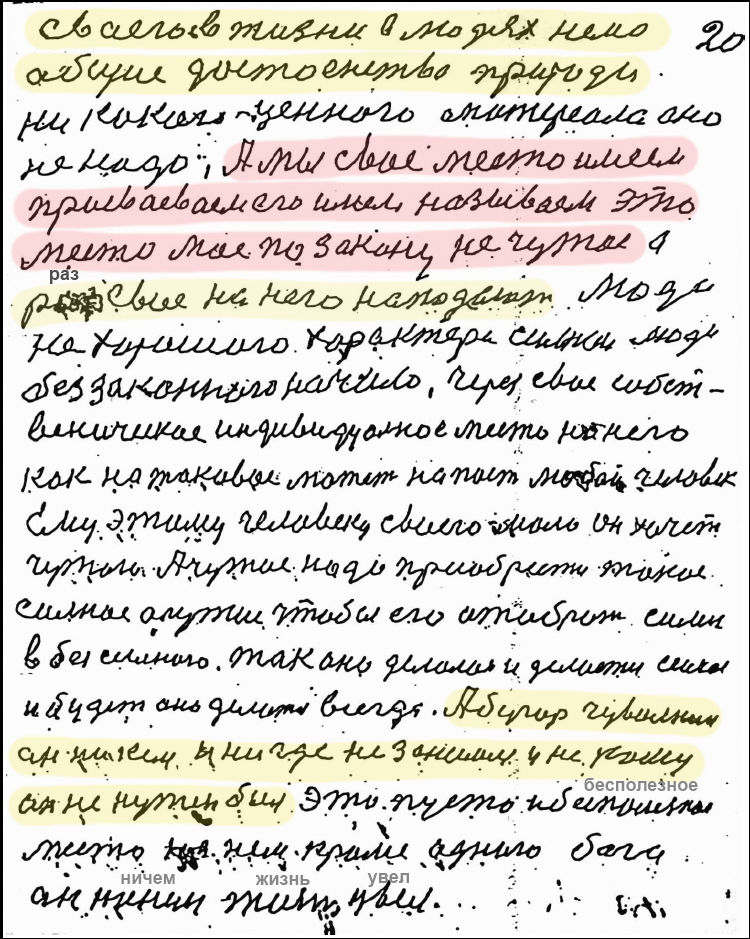 20
сваего в жизни в людях нема
абщие достоенства природи
ни какого ценного материала ано
не надо, А мы свае место имеем
присваеваем его имем называем Это
место мае по закону не чужое а
раз
раз свае на него нападают Люди
не харошого характера силнаи люди
беззаконного начило, через свае собст-
веническае индивидуалнае место на него
как на такавое может напаст любой человек
Ему этому человеку своего мало он хочет
чужого. А чужое надо приобрести такое
силнае аружие чтобы его атабрат силы
в бес силного. так ано делалас и делаетси сичас
и будет ано делатс всегда. А бугор чувалский
ан ни кем и нигде не занимал и не кому
бесполезное
ан не нужен был Это пусто и бесполезное
место на нем кроме аднаго бога
ничем жизнь увел
ан ничем жизн увел.